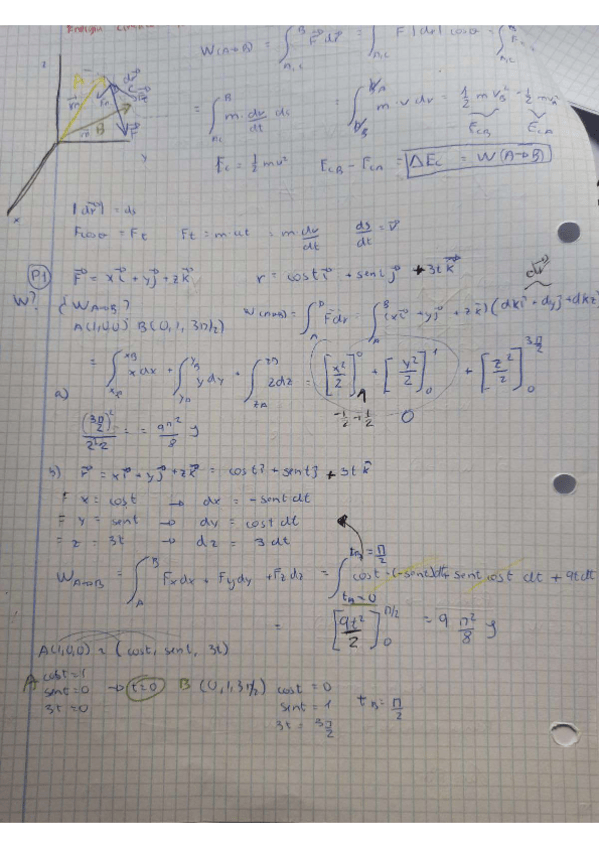 Energía
W(A→B) = ∫ F⃗ dr⃗ = ∫ F |dr| cosσ = ∫
= ∫ m · dv/dt ds = ∫ m · v dv = 1/2 m v_B² - 1/2 m v_A²
E_CB E_CA
E_C = 1/2 mv² E_CB - E_CA = ΔE_C = W(A→B)
|dr⃗| = ds
F cosσ = Ft Ft = m · at = m · dv/dt ds/dt = v⃗
P1 F⃗ = xi⃗ + yj⃗ + zk⃗ r = cost i⃗ + sent j⃗ + 3t k⃗
W? ¿W_A→B? W(A→B) = ∫_A^B F⃗dr = ∫_A^B (xi⃗ + yj⃗ + zk⃗)(dxi⃗ + dyj⃗ + dzk⃗) dr⃗
A(1,0,0) B(0,1,3π/2)
a) = ∫_xA^xB x dx + ∫_yA^yB y dy + ∫_zA^zB z dz = [x²/2]_1^0 + [y²/2]_0^1 + [z²/2]_0^3π/2
-1/2 + 1/2 0
(3π/2)²/2 = = 9π²/8 J
b) r⃗ = xi⃗ + yj⃗ + zk⃗ = cost i + sent j + 3t k⃗
x = cost → dx = -sent dt
y = sent → dy = cost dt
z = 3t → dz = 3 dt
W_A→B = ∫_A^B Fxdx + Fydy + Fzdz = ∫_tA=0^tB=π/2 cost · (-sent)dt + sent cost dt + 9t dt
= [9t²/2]_0^π/2 = 9 π²/8 J
A(1,0,0) = (cost, sent, 3t)
A cost = 1 sent = 0 3t = 0 → t=0 B (0,1,3π/2) cost = 0 sent = 1 3t = 3π/2 t_B = π/2